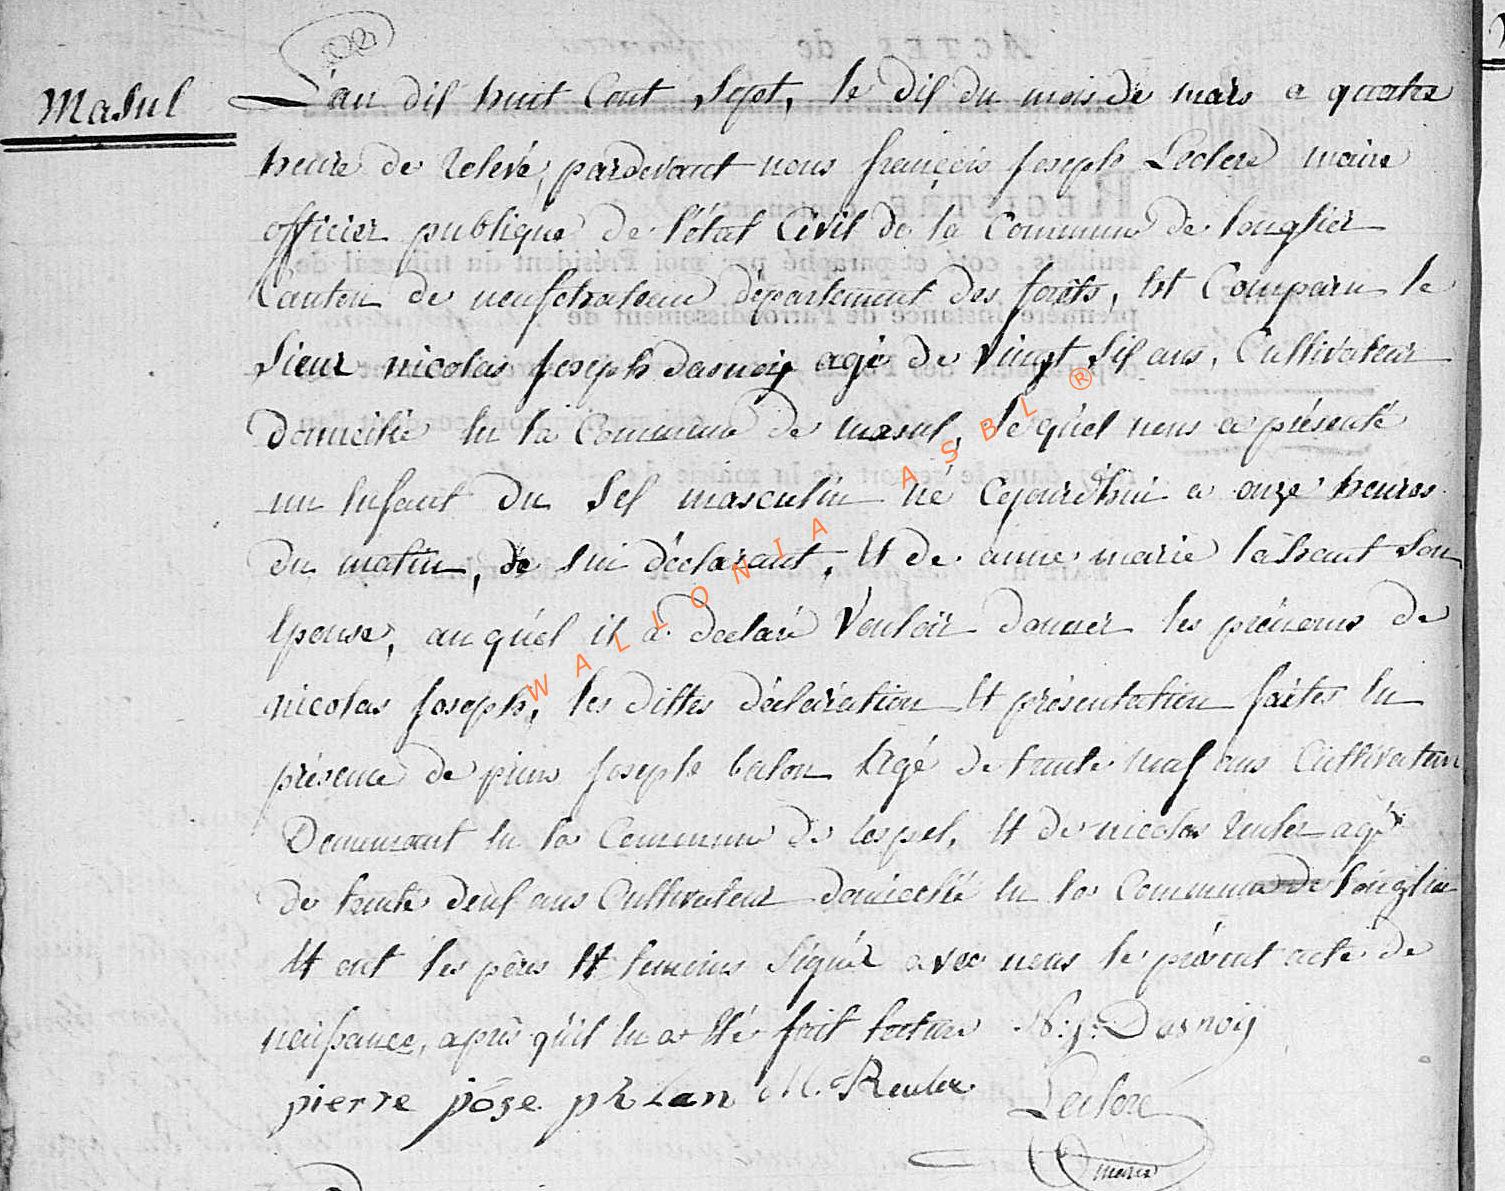 Masul
L'an dix huit Cent Sept, le dix du mois de mars a quatre
heure de relevé, pardevant nous françois joseph Leclere maire
officier publique de l'état Civil de la Commune de longlier
Canton de neufchateau département des forêts, Est Comparu le
Sieur nicolas joseph dasnoij agé de vingt Six ans, Cultivateur
domicilié En la Commune de masul, le quél nous a présenté
un Enfant du Sex masculin né cejourd'hui a onze heures
du matin, de lui déclarant, Et de anne marie son
Epouse, au quél il a déclaré Vouloir donner les prénoms de
nicolas joseph, les dittes déclaration Et présentation faites En
présence de pierre joseph agé de trente neuf ans Cultivateur
Demeurant En la Commune de Et de nicolas reuter agé
de trente deux ans Cultivateur domicilié En la Commune de longlier
Et ont les père Et temoins Signér avec nous le présent acte de
neissance, après qu'il En a Eté fait lecture N: j: Dasnoij
pierre jóse ph N. Reuter Leclere
maire
WALLONIA ASBL ®